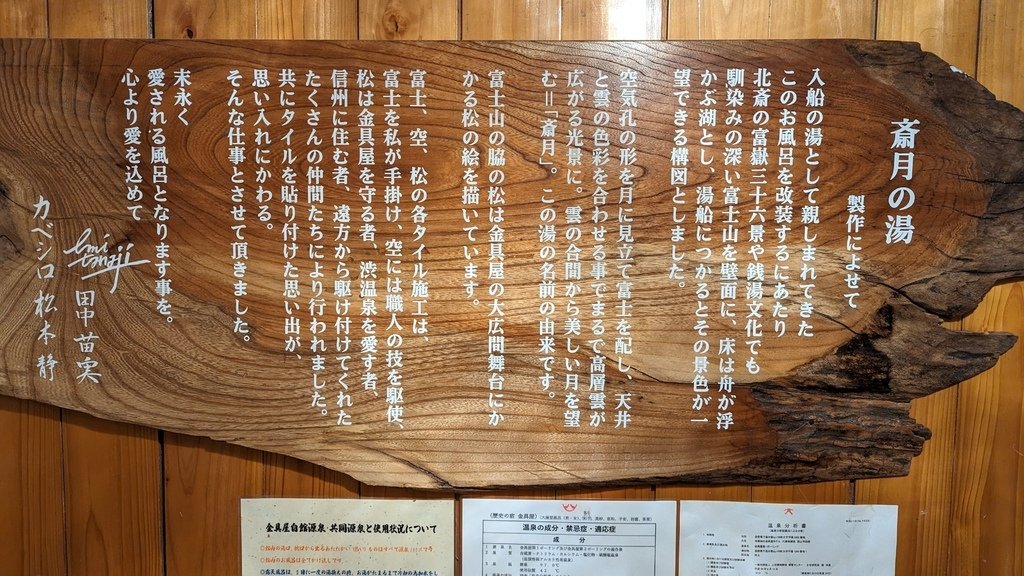 斎月の湯
製作によせて
入船の湯として親しまれてきた
このお風呂を改装するにあたり
北斎の富嶽三十六景や銭湯文化でも
馴染みの深い富士山を壁面に、床は舟が浮
かぶ湖とし、湯船につかるとその景色が一
望できる構図としました。
空気孔の形を月に見立て富士を配し、天井
と雲の色彩を合わせる事でまるで高層雲が
広がる光景に。雲の合間から美しい月を望
む＝「斎月」。この湯の名前の由来です。
富士山の脇の松は金具屋の大広間舞台にか
かる松の絵を描いています。
富士、空、松の各タイル施工は、
富士を私が手掛け、空には職人の技を駆使、
松は金具屋を守る者、渋温泉を愛す者、
信州に住む者、遠方から駆け付けてくれた
たくさんの仲間たちにより行われました。
共にタイルを貼り付けた思い出が、
思い入れにかわる。
そんな仕事とさせて頂きました。
末永く
愛される風呂となります事を。
心より愛を込めて
田中苗実
カベシロ 松本 静
金具屋自館源泉・共同源泉と使用状況について
（歴史の宿 金具屋）
温泉の成分・禁忌症・適応症
成 分
温泉分析書